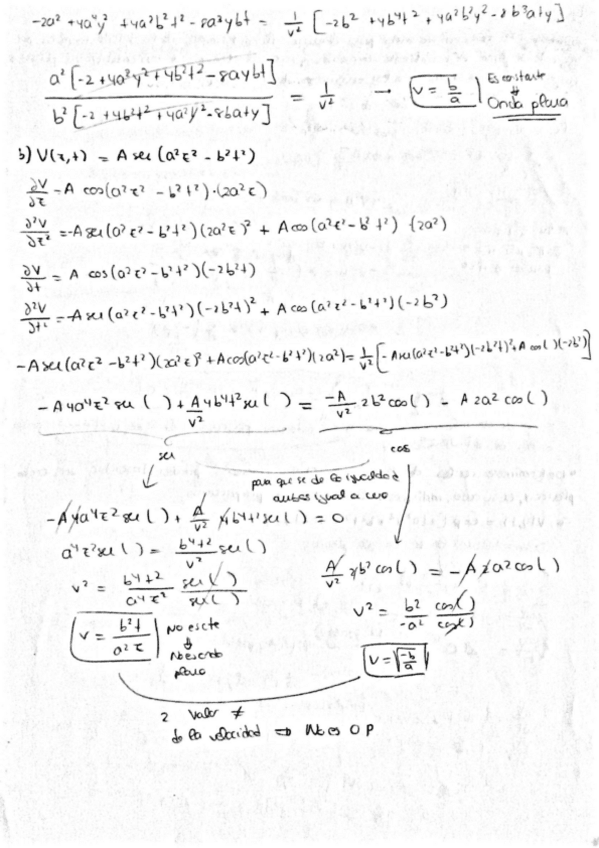 -2a² + 4a⁴y² + 4a²b²t² - 8a³ybt = 1/v² [-2b² + 4b⁴t² + 4a²b²y² - 8b³aty]
a² [-2 + 4a²y² + 4b²t² - 8aybt] / b² [-2 + 4b²t² + 4a²y² - 8baty] = 1/v² → v = b/a Es constante ⇓ Onda plana
b) V(z,t) = A sen (a²z² - b²t²)
∂V/∂z = A cos(a²z² - b²t²)·(2a²z)
∂²V/∂z² = -A sen(a²z² - b²t²)(2a²z)² + A cos(a²z² - b²t²)·(2a²)
∂V/∂t = A cos(a²z² - b²t²)(-2b²t)
∂²V/∂t² = -A sen(a²z² - b²t²)(-2b²t)² + A cos(a²z² - b²t²)(-2b²)
-A sen(a²z² - b²t²)(2a²z)² + A cos(a²z² - b²t²)(2a²) = 1/v² [-A sen(a²z² - b²t²)(-2b²t)² + A cos( )(-2b²)]
-A4a⁴z² sen ( ) + A/v² 4b⁴t² sen ( ) = -A/v² 2b² cos( ) - A 2a² cos( )
sen cos
para que se de la igualdad
ambas igual a cero
-A4a⁴z² sen( ) + A/v² 4b⁴t² sen( ) = 0
a⁴z² sen( ) = b⁴t²/v² sen( )
A/v² 2b² cos( ) = -A 2a² cos( )
v² = b⁴t²/a⁴z² sen( )/sen( )
v² = b²/-a² cos( )/cos( )
v = b²t/a²z No es cte ⇓ No es onda plana
v = √(-b/a)
2 valor ≠
de la velocidad ⇒ No es O P